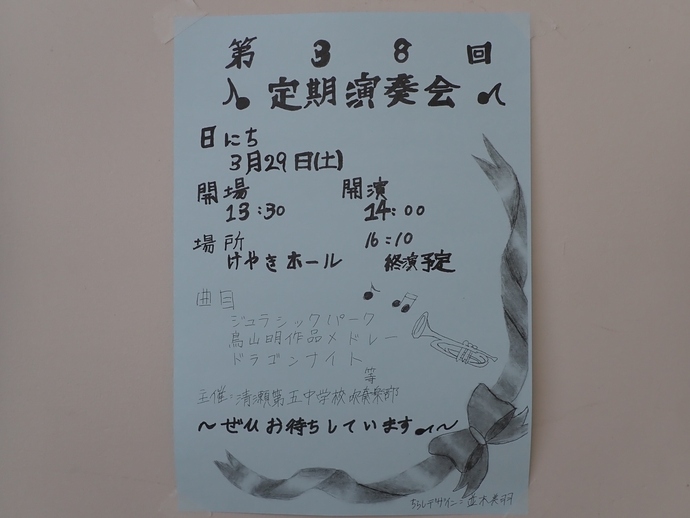 第38回
定期演奏会
日にち
3月29日(土)
開場 開演
13:30 14:00
場所 16:10
けやきホール 終演予定
曲目
ジュラシックパーク
鳥山明作品メドレー
ドラゴンナイト
等
主催:清瀬第五中学校吹奏楽部
〜ぜひお待ちしています♪〜
ちらしデザイン:並木美羽